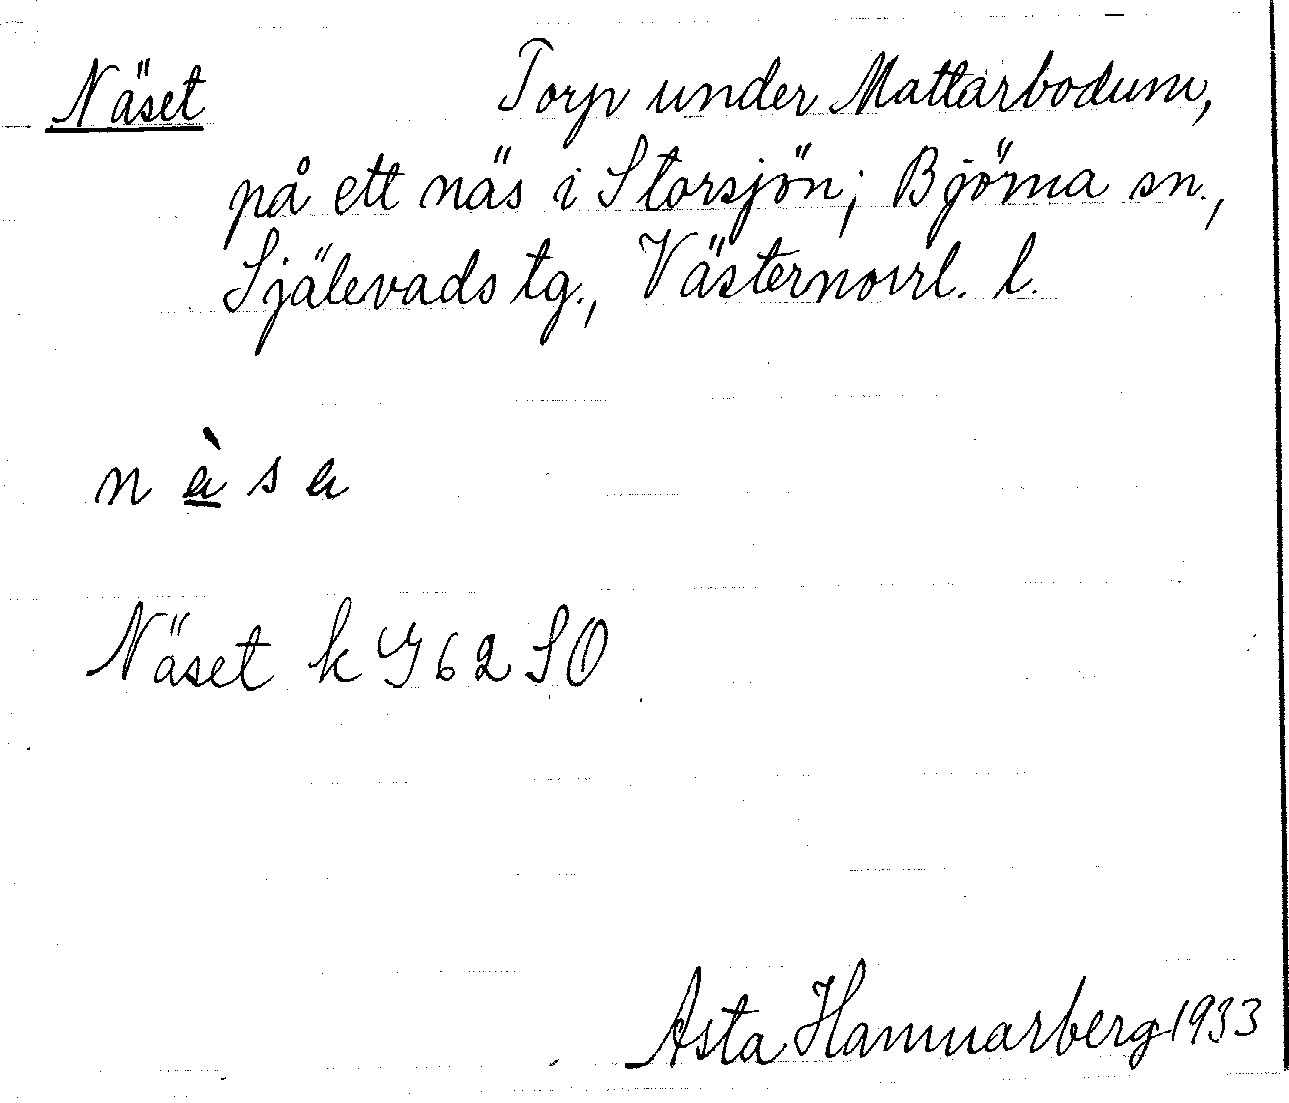 Näset Torp under Mattarbodum,
på ett näs i Storsjön; Björna sn.,
Själevads tg., Västernorrl. l.
n à̲ s a
Näset k 962 SO
Asta Hammarberg 1933